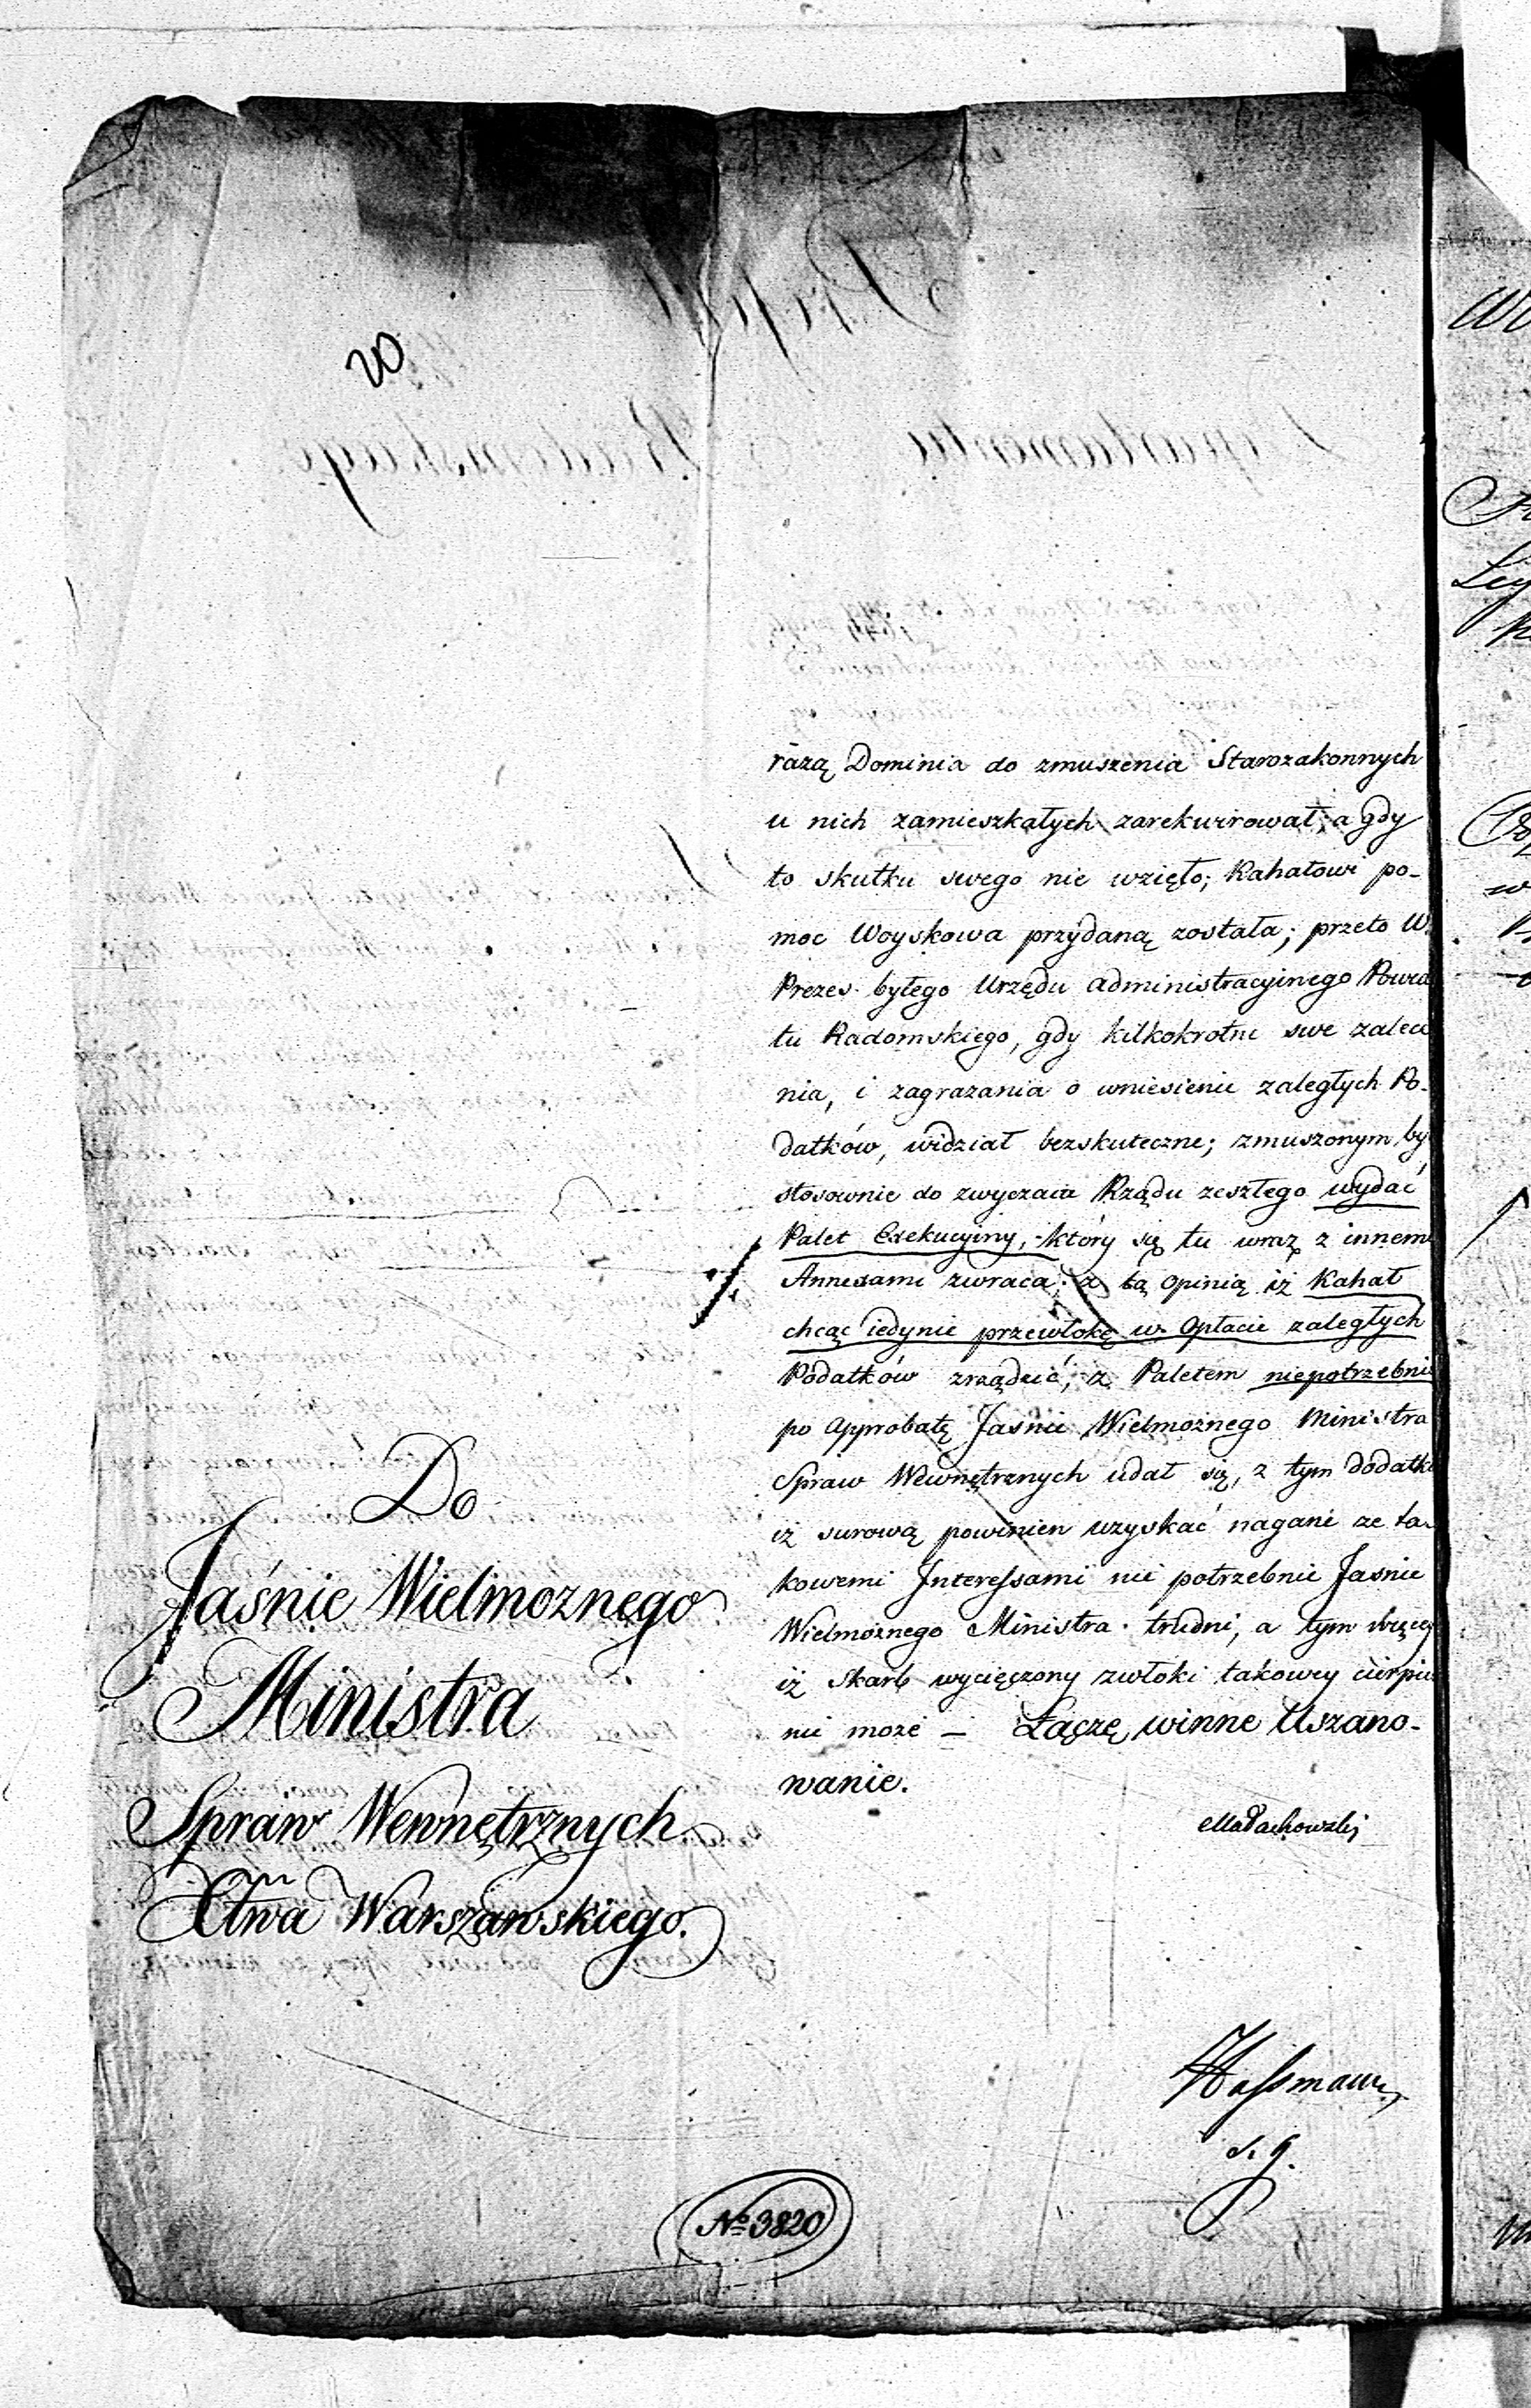 20
razą Dominia do zmuszenia Starozakonnych
u nich zamieszkałych zarekwirował; a gdy
to skutku swego nie wzięło; Kahałowi po-
moc Woyskowa przydaną została; przeto W.
Prezes byłego Urzędu administracyinego Powia
tu Radomskiego, gdy kilkokrotne swe zalece
nia, i zagrażania o wniesienie zaległych Po-
datków, widział bezskuteczne; zmuszonym by
stosownie do zwyczaiu Rządu zeszłego wydać
Palet Exekucyiny, który się tu wraz z innemi
Annexami zwraca; z tą opinią iż Kahał
chcąc iedynie przewłokę w Opłacie zaległych
Podatków zrządzić, z Paletem niepotrzebnie
po Approbatę Jaśnie Wielmożnego Ministra
Spraw Wewnętrznych udał się, z tym dodatki
iż surową powinien uzyskać naganę ze ta-
kowemi Interessami nie potrzebnie Jaśnie
Wielmożnego Ministra trudni, a tym więcey
iż Skarb wycięczony zwłoki takowey cierpie
nie może — Łączę winne Uszano-
wanie.
Małachowski
Do
Jaśnie Wielmożnego
Ministra
Spraw Wewnętrznych
Xtwa Warszawskiego.
s. g.
No 3820